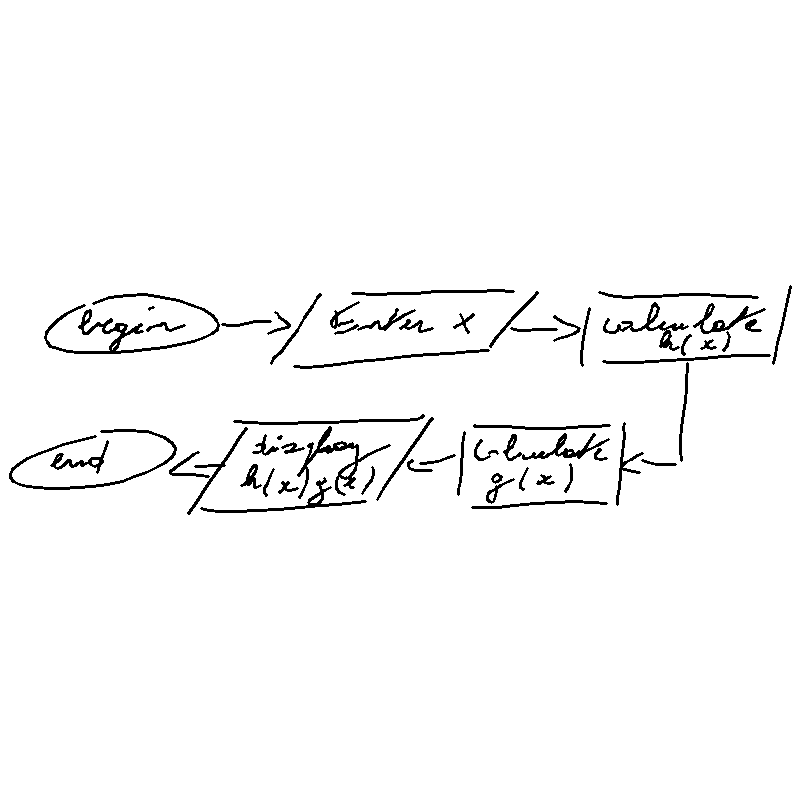 begin
Enter x
calculate
h(x)
calculate
g(x)
display
h(x)g(x)
end